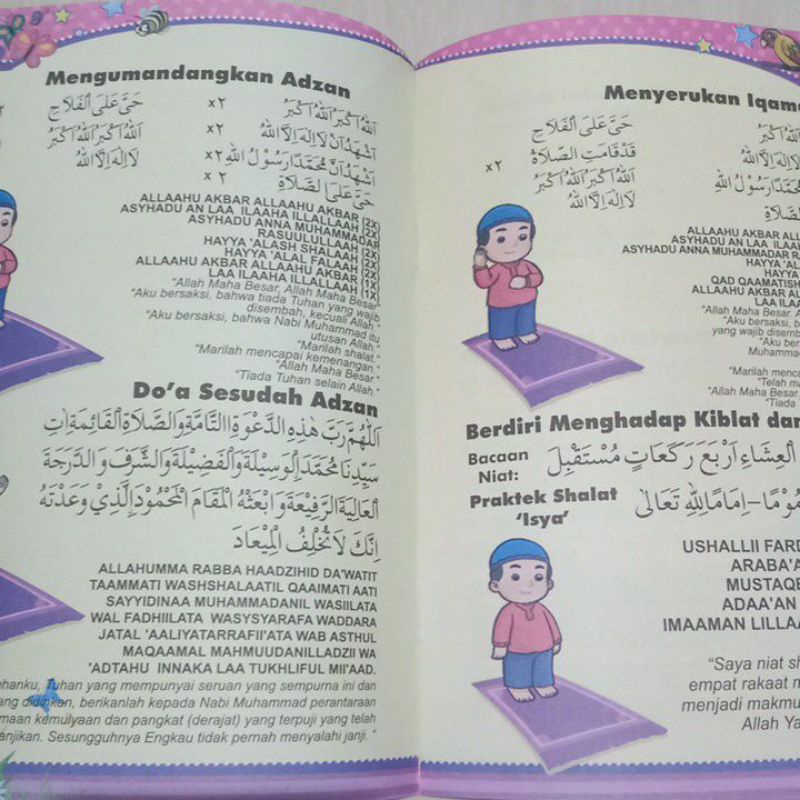 Mengumandangkan Adzan
اَللهُ اَكْبَرُ اَللهُ اَكْبَرُ x٢ حَيَّ عَلَى الْفَلَاحِ
اَشْهَدُ اَنْ لَا اِلٰهَ اِلَّا اللهُ x٢ اَللهُ اَكْبَرُ اَللهُ اَكْبَرُ
اَشْهَدُ اَنَّ مُحَمَّدًا رَسُوْلُ اللهِ x٢ لَا اِلٰهَ اِلَّا اللهُ
حَيَّ عَلَى الصَّلَاةِ x٢
ALLAAHU AKBAR ALLAAHU AKBAR (2X)
ASYHADU AN LAA ILAAHA ILLALLAAH (2X)
ASYHADU ANNA MUHAMMADAR
RASUULULLAAH (2X)
HAYYA 'ALASH SHALAAH (2X)
HAYYA 'ALAL FALAAH (2X)
ALLAAHU AKBAR ALLAAHU AKBAR (1X)
LAA ILAAHA ILLALLAAH (1X)
"Allah Maha Besar, Allah Maha Besar"
"Aku bersaksi, bahwa tiada Tuhan yang wajib
disembah, kecuali Allah"
"Aku bersaksi, bahwa Nabi Muhammad itu
utusan Allah"
"Marilah shalat."
"Marilah mencapai kemenangan."
"Allah Maha Besar"
"Tiada Tuhan selain Allah"
Do'a Sesudah Adzan
اَللّٰهُمَّ رَبَّ هٰذِهِ الدَّعْوَةِ التَّامَّةِ وَالصَّلَاةِ الْقَائِمَةِ اٰتِ
سَيِّدِنَا مُحَمَّدَ اِلْوَسِيْلَةَ وَالْفَضِيْلَةَ وَالشَّرَفَ وَالدَّرَجَةَ
الْعَالِيَةَ الرَّفِيْعَةَ وَابْعَثْهُ الْمَقَامَ الْمَحْمُوْدَ الَّذِيْ وَعَدْتَهُ
اِنَّكَ لَا تُخْلِفُ الْمِيْعَادَ
ALLAHUMMA RABBA HAADZIHID DA'WATIT
TAAMMATI WASHSHALAATIL QAAIMATI AATI
SAYYIDINAA MUHAMMADANIL WASIILATA
WAL FADHIILATA WASYSYARAFA WADDARA
JATAL 'AALIYATARRAFII'ATA WAB ASTHUL
MAQAAMAL MAHMUUDANILLADZII WA
'ADTAHU INNAKA LAA TUKHLIFUL MII'AAD.
Tuhan yang mempunyai seruan yang sempurna ini dan
yang didirikan, berikanlah kepada Nabi Muhammad perantaraan
kemulyaan dan pangkat (derajat) yang terpuji yang telah
Sesungguhnya Engkau tidak pernah menyalahi janji. "
Menyerukan Iqama
اَللهُ اَكْبَرُ حَيَّ عَلَى الْفَلَاحِ
لَا اِلٰهَ اِلَّا اللهُ x٢ قَدْ قَامَتِ الصَّلَاةُ
مُحَمَّدًا رَسُوْلُ اللهِ اَللهُ اَكْبَرُ اَللهُ اَكْبَرُ
الصَّلَاةِ لَا اِلٰهَ اِلَّا اللهُ
ALLAAHU AKBAR ALL
ASYHADU AN LAA ILAA
ASYHADU ANNA MUHAMMADAR RA
HAYYA 'A
HAYYA
QAD QAAMATISH
ALLAAHU AKBAR AL
LAA ILAA
"Allah Maha Besar, A
"Aku bersaksi, b
yang wajib disemba
"Aku ber
Muhamma
"Marilah menca
"Telah m
"Allah Maha Besar,
"Tiada
Berdiri Menghadap Kiblat dan
Bacaan
Niat:
الْعِشَاءِ اَرْبَعَ رَكَعَاتٍ مُسْتَقْبِلَ
Praktek Shalat
'Isya'
مُوْمًا - اِمَامًا لِلّٰهِ تَعَالٰى
USHALLII FARD
ARABA'A
MUSTAQB
ADAA'AN
IMAAMAN LILLAA
"Saya niat sh
empat rakaat m
menjadi makmu
Allah Ya